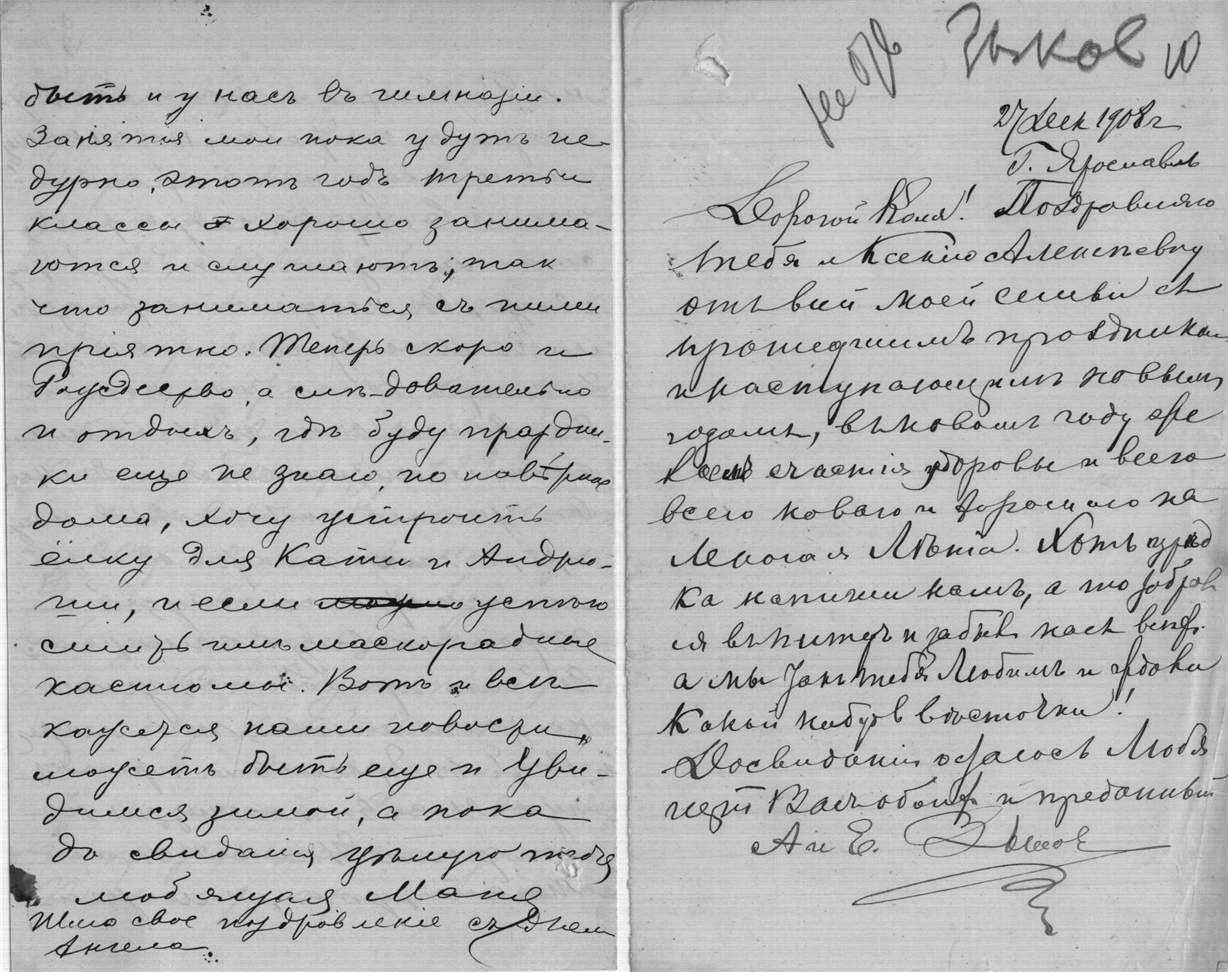 быть и у насъ въ гимназіи.
Занятія мои пока идутъ не-
дурно, этотъ годъ третьи
классы хорошо занима-
ются и слушаютъ, так
что заниматься съ ними
пріятно. Теперь скоро и
Рождество, а слѣдовательно
и отдыхъ, гдѣ буду праздни-
ки еще не знаю, но навѣрное
дома, хочу устроить
ёлку для Кати и Андрю-
ши, и если успѣю
сшить имъ маскорадные
костюмы. Вотъ и всѣ
кажется наши новости,
можетъ быть еще и Уви-
димся зимой, а пока
до свиданія цѣлую тебя
любящая Маня
Шлю свое поздровленіе съ Днем
Ангела.
не отв Зыков 10
27 Дек 1908 г
Г. Ярославль
Дорогой Коля! Поздровляю
тебя и Ксенію Алексѣевну
отъ всей моей семьи съ
прошедшимъ праздникам
и наступающимъ новымъ
годомъ, въ новомъ году
счастія здоровья и всего
всего новаго и хорошаго на
Многая Лѣта. Хоть изрѣд
ка напиши намъ, а то забрал
ся въ Питеръ и забылъ насъ
а мы тебя Любимъ и
Какой нибудь вѣсточки!
Досвиданія остаюсь Любя
щій Васъ обоихъ и преданный
А и Е. Зыков